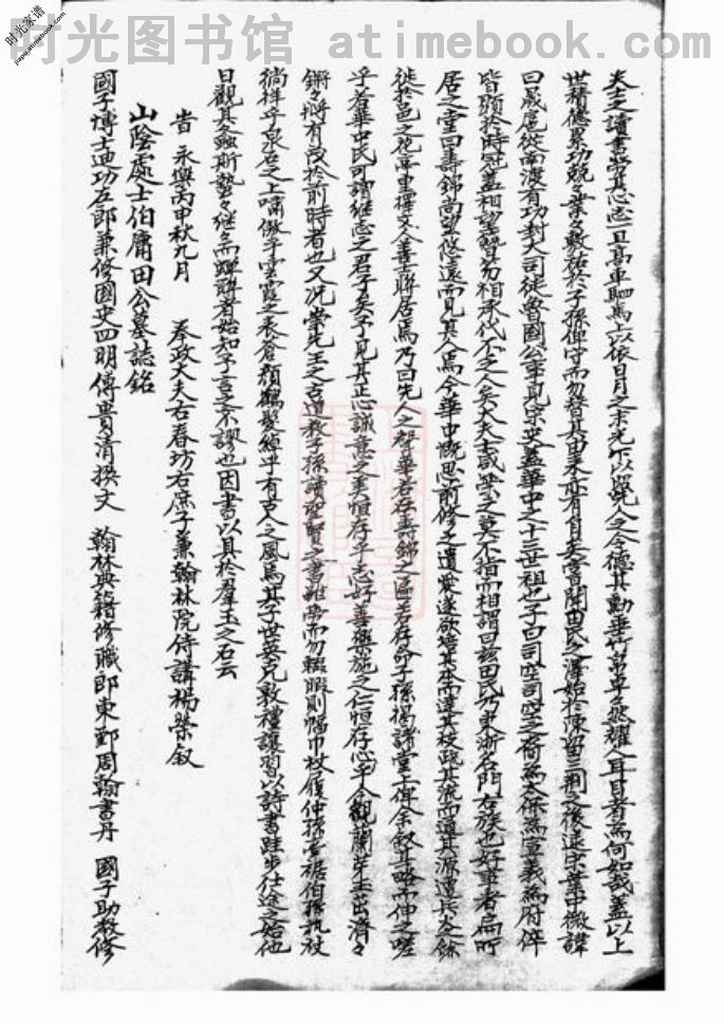 时光图书馆 atimebook.com
时光家谱
jiapu.atimebook.com
夫士之讀書勞其心志一旦高車駟馬上以依日月之末光下以顯先人之令德其勳華竹帛卓然耀人耳目者為何如哉蓋以上
世積德累功兢々業々敷祐於子孫俾守而勿替其由来亦有自矣嘗聞田氏之澤始於陳留三荆之後遠宗業中微諱
曰晟扈從南渡有功封大司徒魯國公事見宋史蓋華中之十三世祖也子曰司空司空之裔為太保為宣義為府倅
皆顯於時冠蓋相望簪笏相承代不乏人矣大夫士誠榮之莫不指而相謂曰兹田氏乃東浙名門右族也好事者扁所
居之堂曰壽錦尚望悠遠而見其人焉今華中慨思前修之遺愛遂欲培其本而達其枝疏其流而遡其源遭兵火之餘
徙於邑之花亭里擇交人善士聯居焉乃曰先人之聲華若存壽錦之區若存命子孫揭諸堂上俾余叙其略而伸之嗟
乎若華中氏可謂继志之君子矣予見其正心誠意之美恒存乎志好善樂施之仁恒存心乎今觀蘭芽玉茁濟々
鏘々將有改於前時者也又况崇先王之古道教子孫讀聖賢之書雖勞而勿輟暇則幅巾杖履仲孫牽裾伯孫执杖
徜徉乎泉石之上嘯傲乎雲霞之表蒼顏鶴髮綽乎有古人之風焉其子世英克敦禮讓習以詩書跬步仕途之始他
日觀其螽斯蟄々继々而蟬聯者始知予言之不謬也因書以具於羣玉之石云
旹 永樂丙申秋九月 奉政大夫右春坊右庶子兼翰林院侍講楊榮叙
山陰處士伯庸田公墓誌銘
國子博士迪功左郎兼修國史四明傅貴清撰文 翰林典籍修職郎東鄞周翰書丹 國子助教修